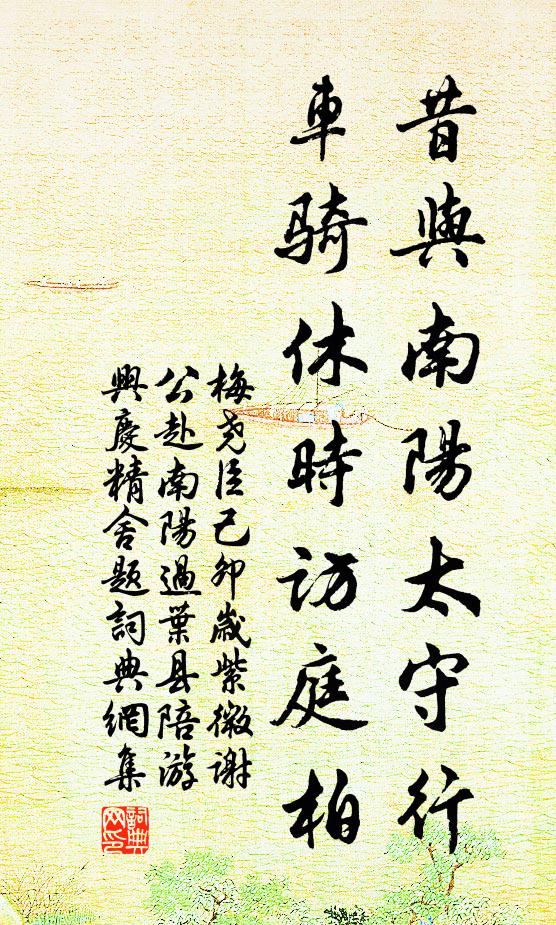 昔與南陽太守行
車騎休時訪庭柏
梅堯臣己卯歲紫微謝
公赴南陽過葉县陪游
興慶精舍題詞典網集
詞典网印